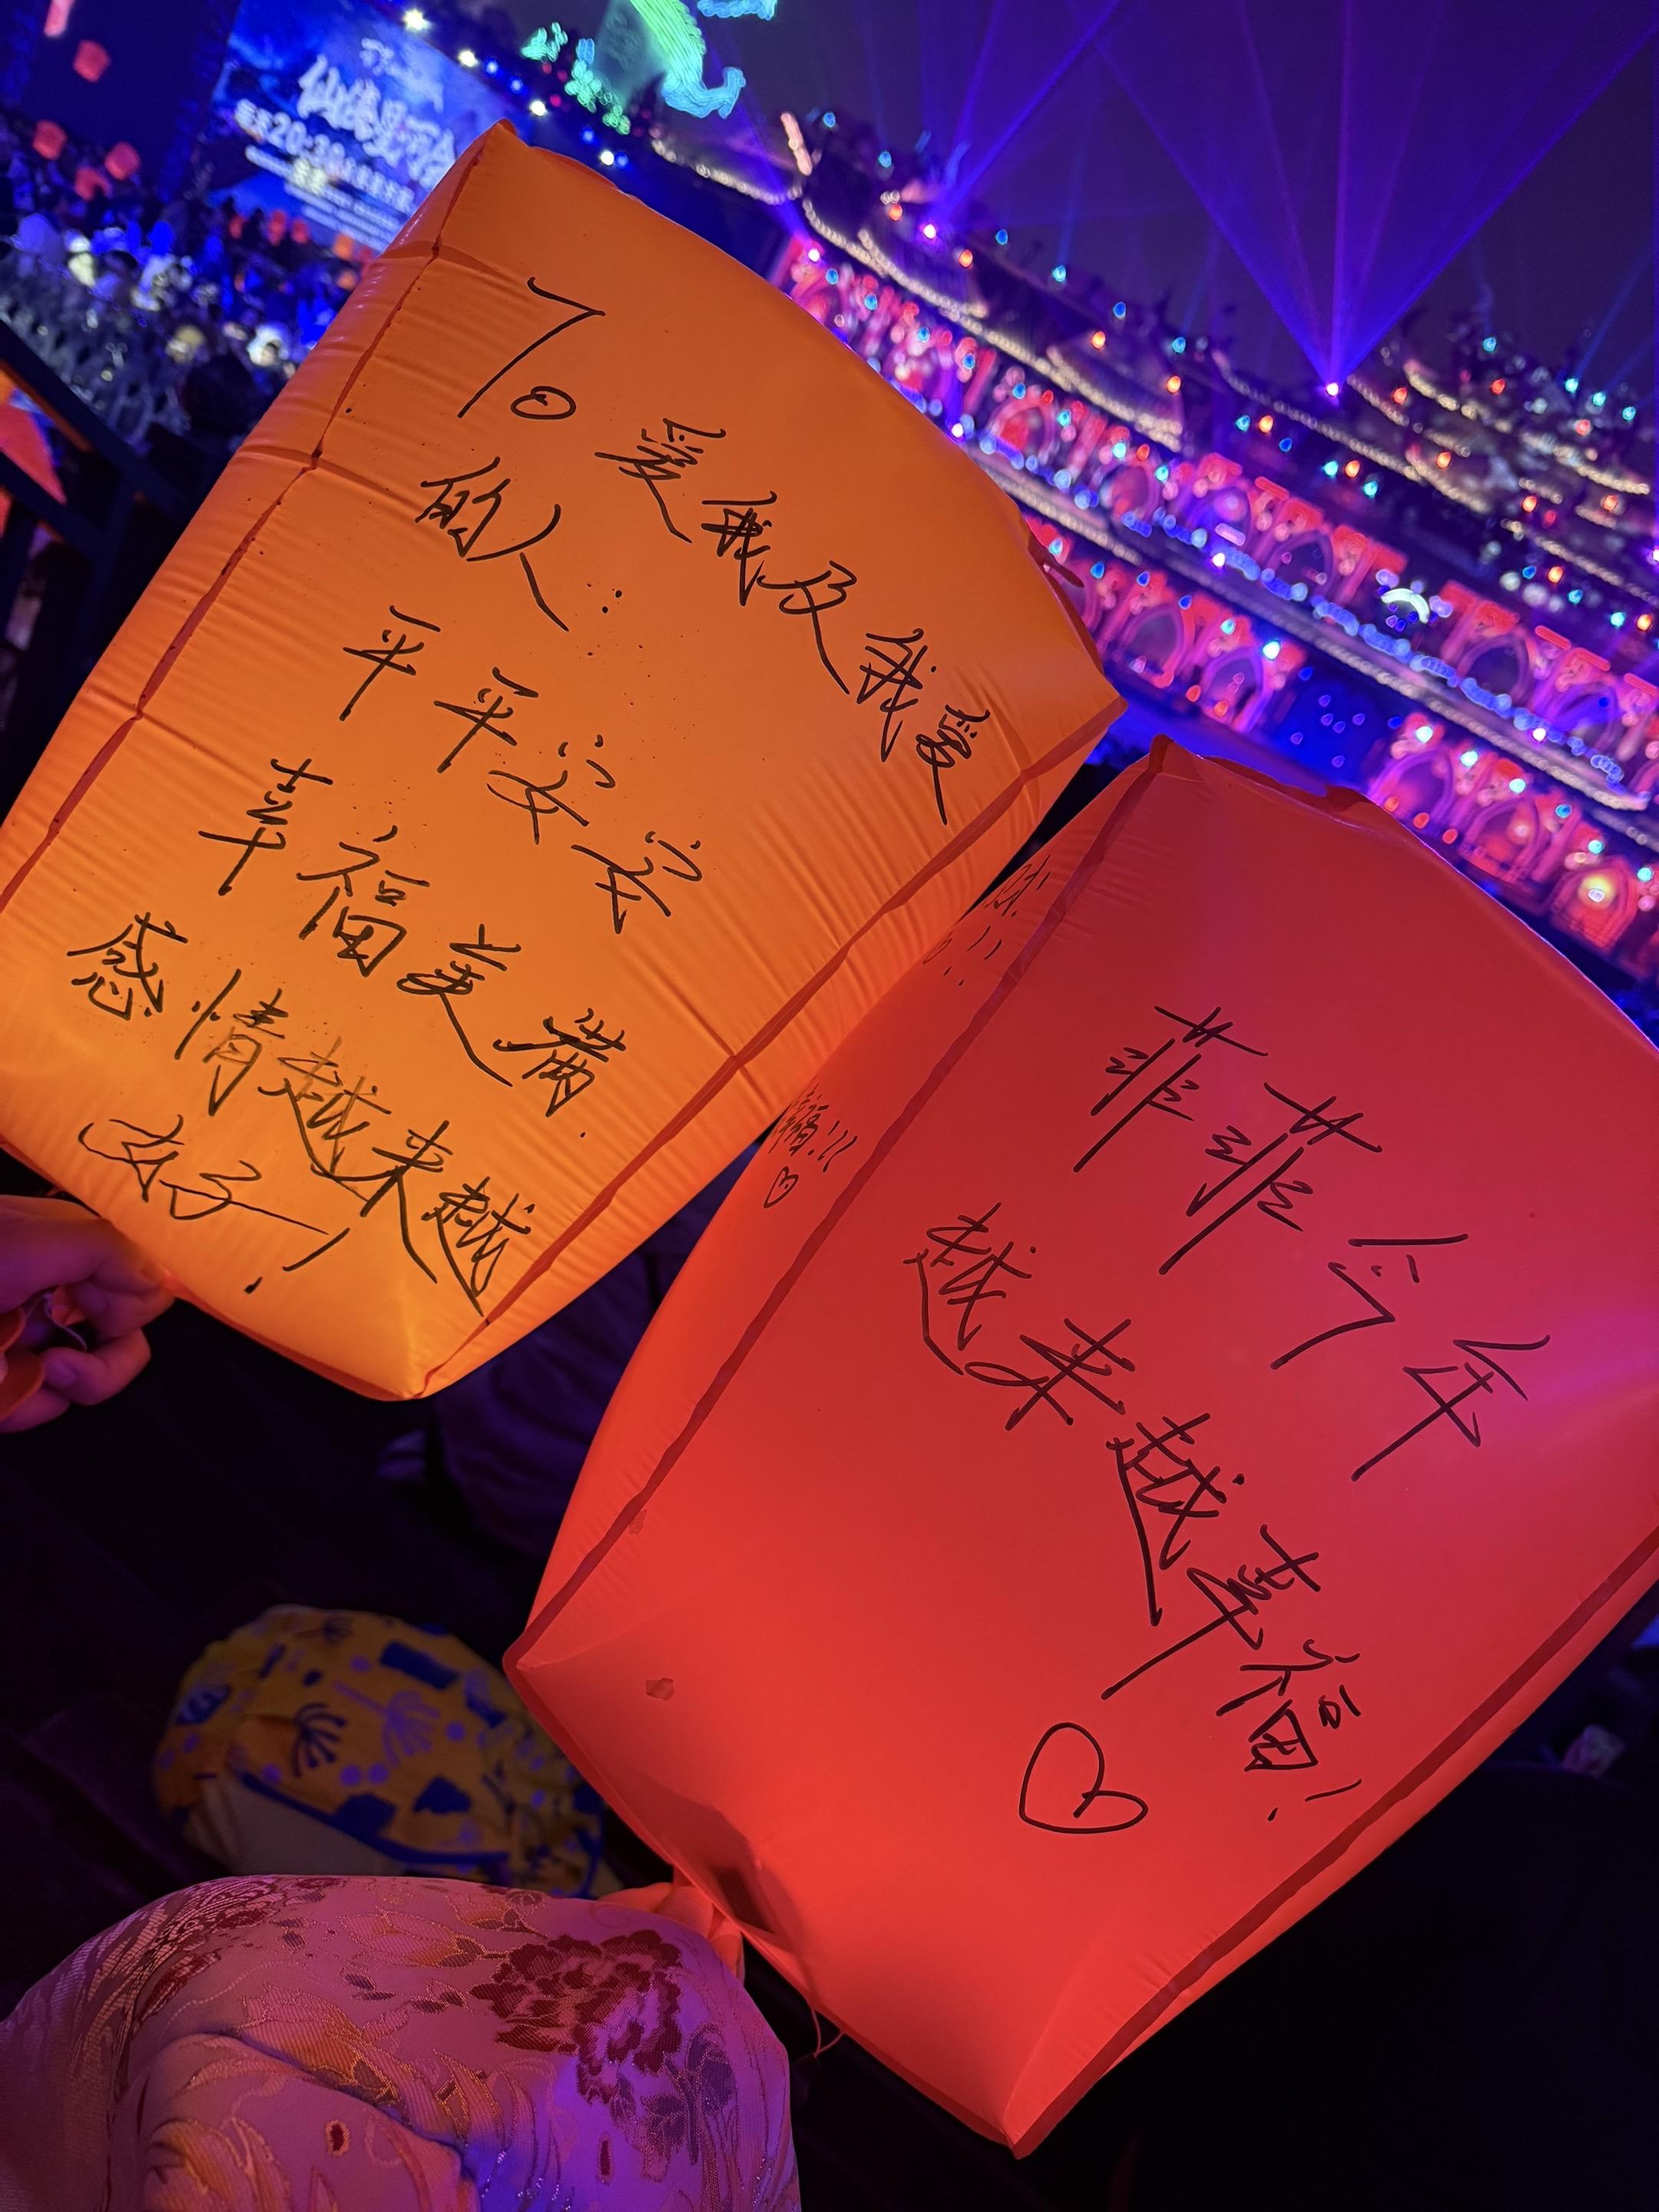 7。爱我及我爱
的人:
平平安安
幸福美满.
感情越来越
好!
菲菲今年
越来越幸福!
幸福!!!
20-30